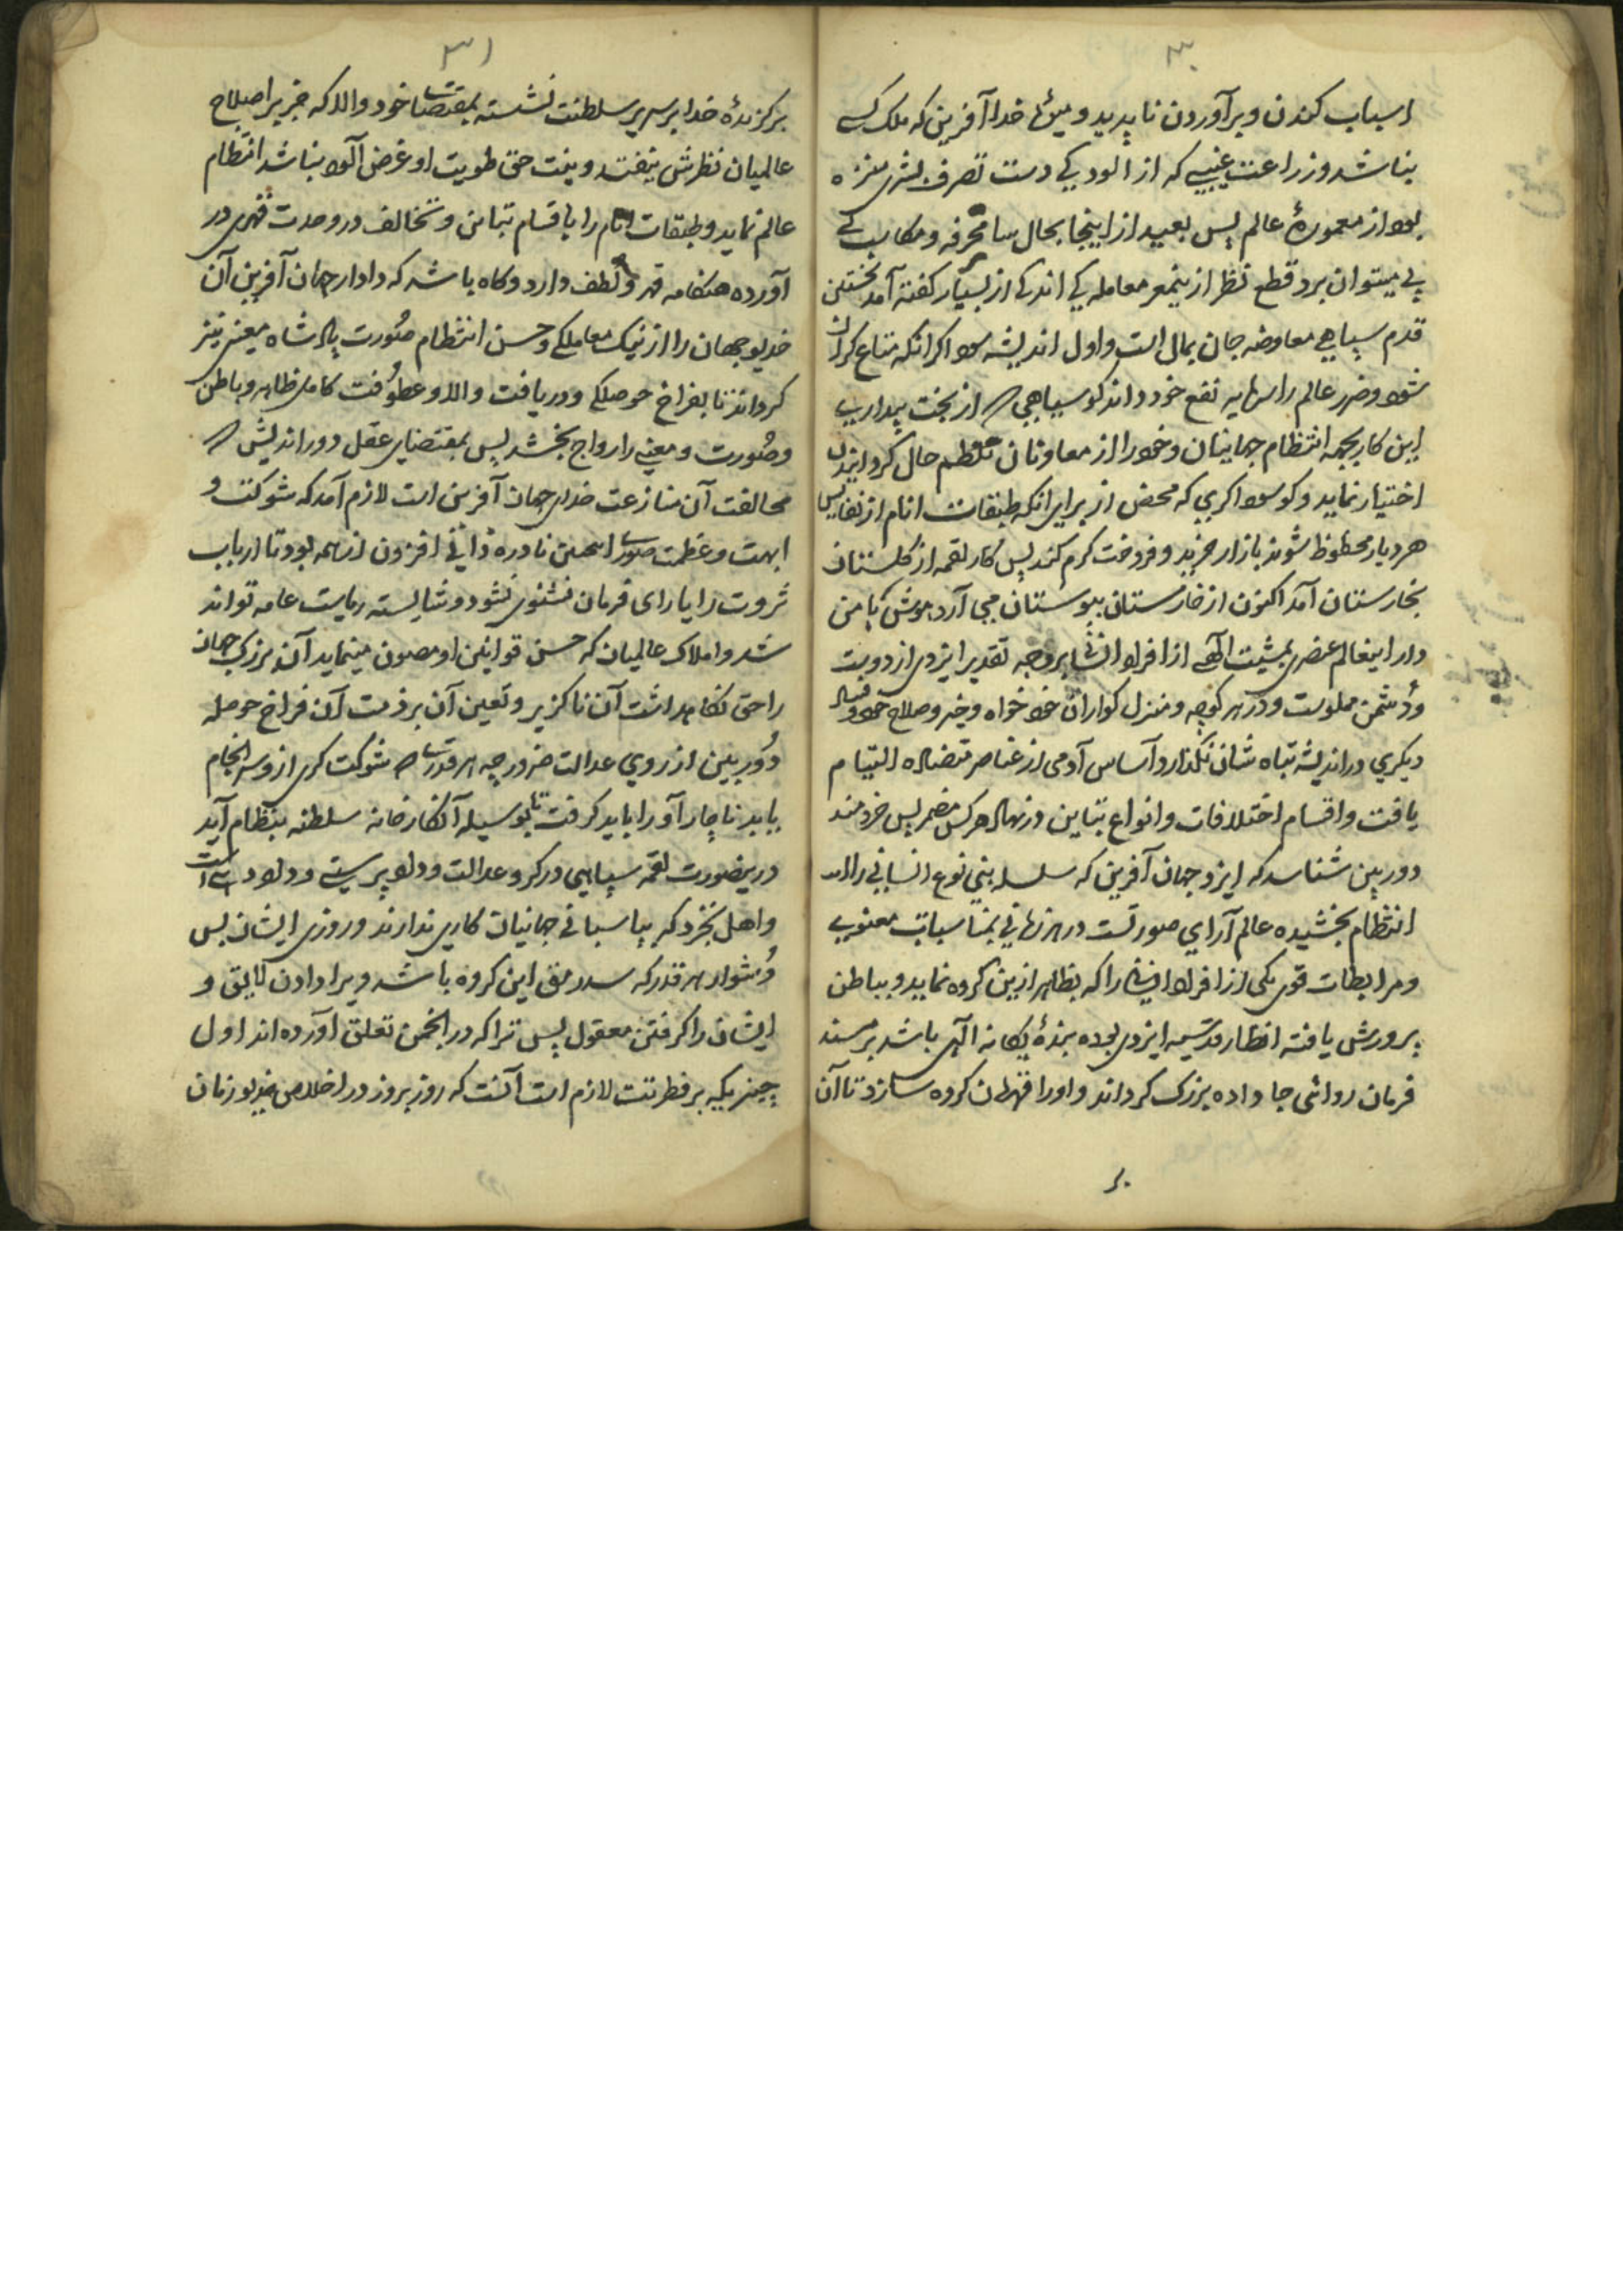 ۳۰
اسباب کندن و برآوردن ناپدید و میوهٔ خدا آفرین که ملک کسے
نباشد و زراعت غیبی که از آلودیکی دست تصرف بشری منزه
بود از معمورهٔ عالم بس بعید از اینجا بحال سایر محرفه و مکاسب کے
پی میتوان برد قطع نظر ازین معامله کی اندکی از بسیار کفته آمد نخستین
قدم سپاهی معاوضه جان بمال است و اول اندیشه سوداکر آنکه متاع کران
شود و ضرر عالم را سرمایه نفع خود داند کو سپاهیی که از بخت بیداریے
این کار بجهة انتظام جهانیان و خود را از معاونان منتظم حال کردانیدن
اختیار نماید و کو سوداکری که محض از برای آنکه طبقات انام از نفایس
هر دیار محظوظ شوند بازار خرید و فروخت کرم کند پس کار لقمه از کلستان
بخارستان آمد اکنون از خارستان ببوستان می آرد بهوش که من
دار اینعالم عنصری بمشیت الهی از افراد انسانی بر وجه تقدیر ایزدی از دوست
و دشمن مملوست و در هر کوچه و منزل کواران خود خواه و خیر و صلاح خود و فساد
دیکری در اندیشه تباه شان نکذارد و اساس آدمی از عناصر متضاده التیام
یافت و اقسام اختلافات و انواع تباین در نهاد هر کس مضمر پس خردمند
دوربین شناسد که ایزد جهان آفرین که سلسله بنی نوع انسانی را
انتظام بخشیده عالم آرای صورتست در هر زمانی بمناسبات معنوی
و مرابطات قوی یکی از افراد انسانی را که بظاهر ازین کروه نماید و بباطن
پرورش یافته انظار قدسیه ایزدی بوده بندهٔ یکانه الهی باشد بر مسند
فرمان روائی جا داده بزرک کرداند و او را قهرمان کروه سازد تا آن
بر
۳۱
برکزیدهٔ خدا بر سریر سلطنت نشسته بمقتضای خود والا که جز بر اصلاح
عالمیان نظرش نیفتد و نیت حق طویت او غرض آلود نباشد انتظام
عالم نماید و طبقات انام را با اقسام تباین و تخالف در وحدت قهری در
آورده هنکامه قهر و لطف دارد و کاه باشد که دادار جهان آفرین آن
خدیو جهان را از نیک معاملکی و حسن انتظام صورت پادشاه معنی نیز
کرداند تا بفراخ حوصلکی و دریافت والا و عطوفت کامل ظاهر و باطن
و صورت و معنی را رواج بخشد پس بمقتضای عقل دوراندیش که
مخالفت آن منازعت خدای جهان آفرین است لازم آمد که شوکت و
ابهت و عظمت صوری این نادره ذاتی افزون از همه بود تا ارباب
ثروت را یارای فرمان نشنوی نشود و شایسته ریاست عامه تواند
شد و املاک عالمیان که حسن قوانین او مصون مینماید آن بزرک جهان
را حق نکاهداشت آن ناکزیر و تعین آن بر ذمت آن فراخ حوصله
دوربین از روی عدالت ضرور چه هر قدر که شوکت کری از و سرانجام
یابد ناچار آورا باید کرفت تا بوسیله آن کارخانه سلطنه بنظام آید
درینصورت لقمه سپاهی در کرو عدالت و دادپرستی و دادودهی است
و اهل تجرد که بپاسبانی جهانیان کاری ندارند و روزی ایشان بس
دشوار هر قدر که سد رمق این کروه باشد ویرا دادن لایق و
ایشان را کرفتن معقول پس ترا که در انجمن تعلق آورده اند اول
چیزیکه بر فطرتت لازم است آنست که روز بروز در اخلاص خدیو زمان